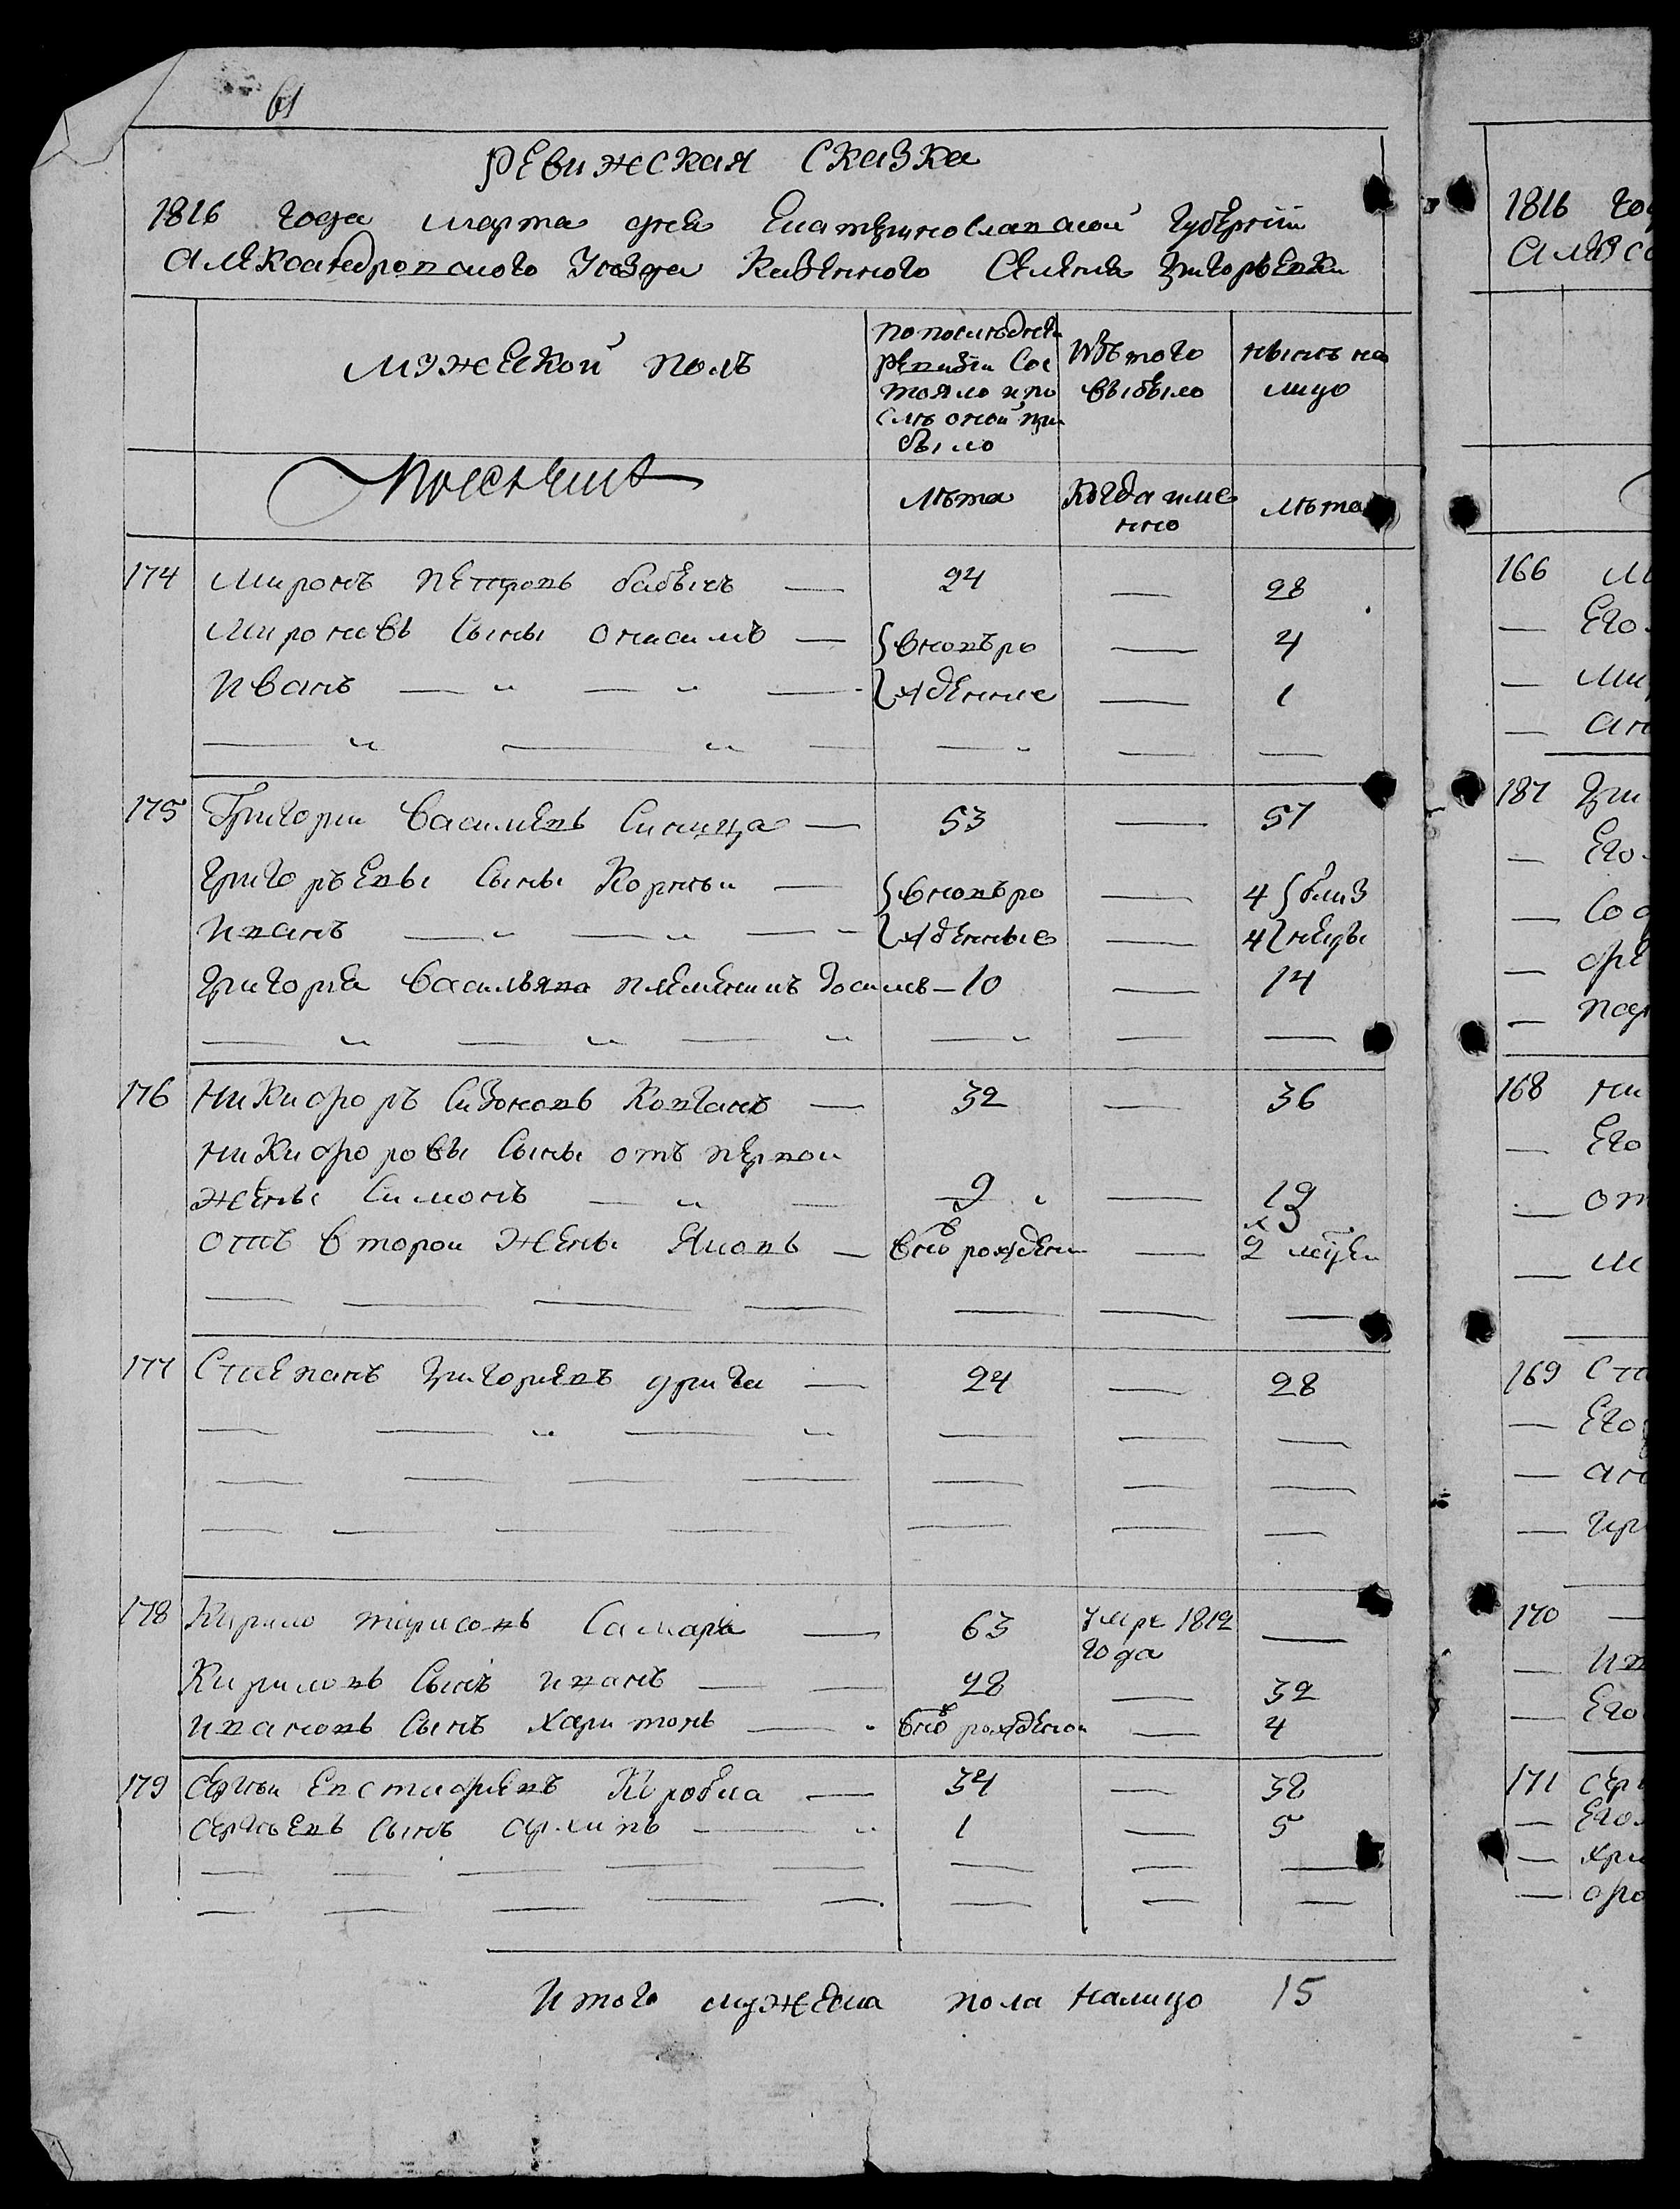 61
Ревижская Сказка
1816 года марта дня Екатеринославской Губернии
Александровского Уезда Казенного Селения Григорьевки
Мужеской полъ
по последней Ревизии Сос тояло и по сле оной при было
Изъ того выбыло
ныне на лицо
лета
Когда име нно
лета
174 Миронъ Петровъ бабыкъ — 24 — 28
Мироновы Сыны Онисимъ — вновь ро — 4
Иванъ — жденные — 1
175 Григории Васильевъ Синица — 53 — 57
Григорьевы Сыны Корнеи — вновь ро — 4 близ
Иванъ — жденные — 4 нецы
Григорья Васильева племенникъ — 10 — 14
176 Никифоръ Сизоновъ Ковганъ — 32 — 36
Никифоровы Сыны отъ первои
жены Симонъ — 9 — 13
отъ второи жены Яковъ — внов рожден — 2 месцеи
177 Степанъ Григориевъ — 24 — 28
178 Кирило Тарасовъ Самара — 63 умре 1812 года —
Кириловъ Сынъ Иванъ — 28 — 32
Ивановъ Сынъ Харитонъ — внов рожденои — 4
179 Сергеи Евстафиевъ Коробка — 34 — 38
Сергеевъ Сынъ Архипъ — 1 — 5
Итого мужеска пола налицо 15
1816
166
Его
187 Гри
Его
168 Ни
Его
169 Сте
Его
170
Ив
Его
171 Сер
Его